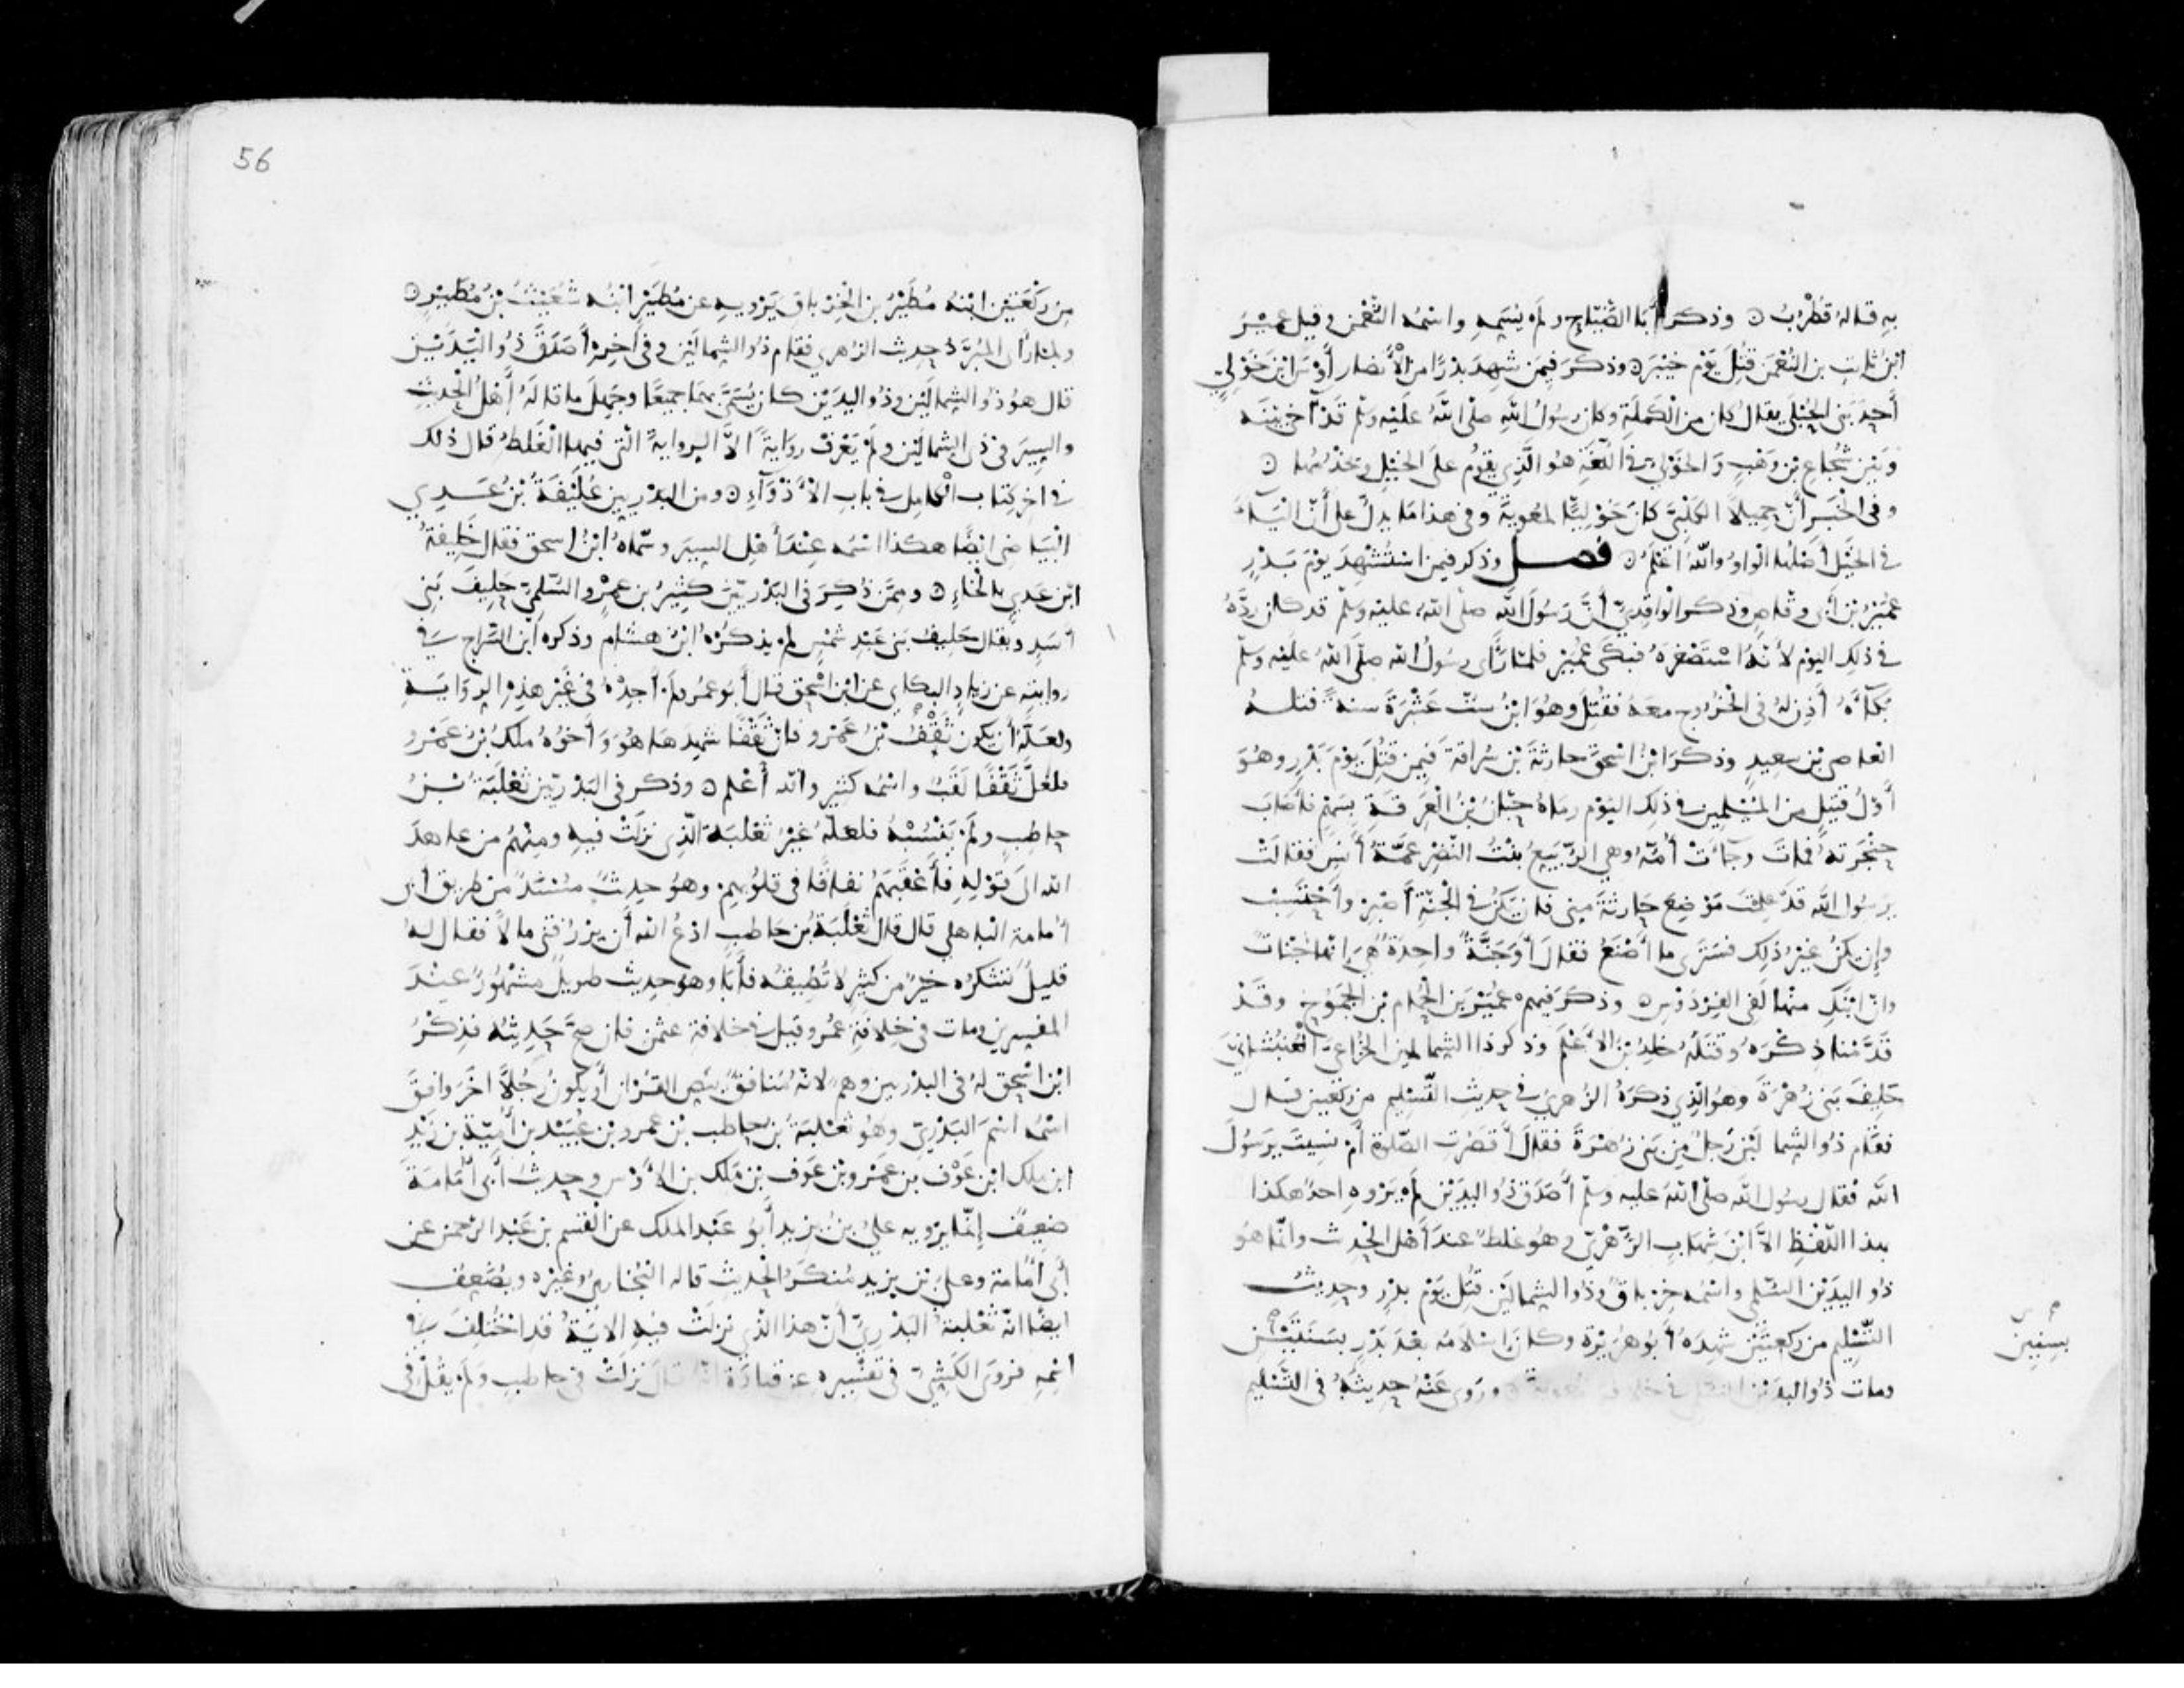 به قاله قُطْرُبٌ ۞ وذكر أبا الضَّيَّاح ولم يُسَمِّه واسمُه النُّعْمن وقيل عُمَيْرَ
ابنُ ثابت بن النُّعْمَن قُتِلَ يَوْم خَيْبَرَ ۞ وذكرَ فيمَن شَهِدَ بَدْرًا من الأَنصار أَوْسَ ابْنَ خَوْلِيٍّ
أَحدَ بَنى الحُبْلَى يقالُ كان من الكَمَلَةِ وكان رسُولُ اللهِ صلى اللهُ عَلَيْه وسَلَّم قَدْ آخى بَيْنَه
وَبَيْن شُجَاعِ بْنِ وَهْبٍ وَالخَوْلِيُّ في اللُّغَةِ هُوَ الَّذِي يقومُ على الخَيْلِ ويَخْدُمُهَا ۞
وفى الخَبَر أَنَّ جميلاً الكَلْبِيَّ كانَ خَوْلِيًّا لمعوية وفى هذا مَا يدلُّ على أَنَّ اليَاءَ
في الخَيْل أَصْلُها الواوُ واللهُ أعْلَمُ ۞ فصل وذكر فيمن اسْتُشْهِدَ يوْمَ بَدْرٍ
عُمَيْرُ بْنَ أَبى وقّاصٍ وذكر الواقِدِيُّ أَنَّ رَسُولَ الله صلى اللهُ عليه وسلّم قد كان ردَّهُ
في ذلك اليَوْم لأَنَّهُ اسْتَصْغَرَهُ فبَكَى عُمَيْرٌ فلمَّا رَأَى رسُولُ الله صلَّى اللهُ علَيْه وسلّم
بُكَآءَهُ أَذِنَ لَهُ فى الخُرُوجِ معَهُ فقُتِلَ وهُوَ ابْنُ سِتّ عَشْرَةَ سنةً قتلـه
العاصى بْن سعيدٍ وذكرَ ابْنُ اسْحَقَ حارثَةَ بْنَ سُرَاقَةَ فيمن قُتِلَ يَوْمَ بَدْرٍ وهُوَ
أَوّلُ قَتيلٍ من المُسْلِمين في ذلك اليَوْم رماهُ حِبَّانُ بْنُ العَرِقَةِ بِسَهْمٍ فأَصَابَ
حنْجَرَتَهُ فماتَ وجآءَتْ أُمُّهُ وهى الرُّبَيِّعُ بنْتُ النَّضْر عَمَّةُ أَنَسٍ فقالَتْ
يرسُولَ اللَّه قَدْ عَلِمْتَ مَوْضِعَ حارثَةَ منِّى فان يَكُنْ في الجَنَّةِ أَصْبِرْ وأَحْتَسِبْ
وإِن يَكُنْ غَيْرُ ذلِك فَسَتَرَى ما أَصْنَعُ فقالَ أَوَجَنَّةٌ واحدَةٌ هِىَ إنّما جنَاتٌ
وانّ ابْنَكِ منها لَفِى الفِرْدَوْسِ ۞ وذكرَ فيهم عُمَيْرَ بنَ الحُمَام بْنِ الجَمُوحِ وقَدْ
قَدَّمْنا ذِكْرَهُ وقَتَلَهُ خلدُ بْنُ الأَعْلَمِ وذكر ذا الشمالين الخُزَاعِىَّ الغُبْشَانِىَّ
حَلِيفَ بَنى زُهْرَةَ وهُوَ الَّذِي ذكَرَهُ الزُّهرِيُّ فى حديثِ التَّسْليم من ركعتين قال
فقام ذُو الشمالَيْن رَجُلٌ مِن بَنى زُهْرَةَ فقَالَ أَقَصُرَت الصّلوةُ أَمْ نسِيتَ يرَسُولَ
اللَّه فقال رسُول الله صلَّى اللهُ عليه وسلّم أَصَدَقَ ذُو اليدَيْن لَمْ يَرْوِهِ احدٌ هكذا
بهذا اللَّفْظِ الاَّ ابْنَ شِهابٍ الزُّهْرِيَّ وهُو غلطٌ عندَ أَهل الحديث وانّما هُو
ذُو اليَدَيْن السُّلَمِى واسْمُه خِرْباقٌ وذُو الشمالَيْن قُتِلَ يَوْمَ بدْرٍ وحديثُ
التَّسْليم من ركعتَيْن شهِدَهُ أَبُو هُرَيْرَةَ وكانَ اسْلامُه بَعْدَ بَدْرٍ بسَنَتَيْن
بسنين
ومات ذُو اليدَيْن السُّلَمى في خلافة مُعوية ۞ ورَوى عَنْهُ حديثَهُ فى التَّسْليم
56
من ركْعَتَيْن ابْنُهُ مُطَيْرُ بن الخِرْباقِ يَرْويه عن مُطَيْرٍ ابنُه شُعَيْثُ بْنُ مُطَيْرٍ ۞
ولمّا رأَى المُبَرّد حديث الزُهري فقام ذُو الشمالَيْن وفى آخره أَصَدَقَ ذُو اليَدَيْن
قال هوَ ذُو الشمالَيْن وذُو اليدَيْن كان يُسَمَّى بهما جميعًا وجَهِلَ ما قالَهُ أَهلُ الحديثِ
والسِيَر فى ذى الشمالَيْن ولَمْ يَعْرفْ روَايَةً الاَّ الروايةَ الَّتى فيها الغَلَطُ قال ذلك
في اخر كتاب الكامِل في باب الأَذْوَآءِ ۞ ومن البَدْرِيين عُلَيْفَةُ بْنُ عَدِي
البَيَاضى ايضًا هكذا اسْمُه عِنْدَ أَهْلِ السِيَر وسَمَّاهُ ابْنُ اسحق فقال خليفةُ
ابْن عَدِي بالخاء ۞ وممَّن ذُكِرَ فى البَدْرِيّينَ كثيرُ بن عَمْرو السُّلَمِيّ حليفُ بَنى
أَسَدٍ ويقال حَليفُ بَنى عَبْدِ شَمْسٍ لم يذكُرْهُ ابْنُ هشامٍ وذكره ابن السَّراج في
روايته عن زيادٍ البكاي عن ابْن اسْحق قال أَبُو عمرَ ولم أَجِدْهُ فى غَيْر هذِهِ الرِوَايـةِ
ولعَلَّهُ أن يكون ثَقْفُ بْنُ عَمْرو فان ثَقْفًا شهِدَها هُوَ وَأَخُوهُ ملكُ بْنُ عَمْرو
فلعَلَّ ثَقْفًا لَقَبٌ واسْمُه كثيرٌ والله أَعْلم ۞ وذكر فى البَدْرِيّين ثَعْلَبَةَ بْنَ
حاطبٍ ولَم يَنْسُبْهُ فلعَلَّهُ غَيْرُ ثعْلبَةَ الَّذِى نزلَتْ فيهِ ومِنْهُم من عاهدَ
الله الى قَوْلِهِ فأَعْقَبَهُمْ نفاقًا فى قلُوبِهِم وهُو حديثٌ مُسْنَدٌ من طريق أبى
أُمامة الباهلي قال قال ثَعْلَبَةُ بن حاطبٍ ادْعُ الله أَن يرْزُقَنِى مالاً فقال لهُ
قليلٌ تَشْكُرُه خيْرٌ من كثيرٍ لا تُطِيقُه فأَبَا وهو حديث طويلٌ مَشْهُورٌ عنْدَ
المفسرين ومات فى خلافَةِ عُمَرَ وقيل في خلافة عثمن فان صَحَّ حَدِيثُه فذِكْرُ
ابْن اسْحق لهُ فى البَدْرِيين وهمٌ لانّهُ مُنافقٌ بنَصِ القُرْان أَو يكُونُ رَجُلاً اخَرَ وافَقَ
اسْمُه اسْمَ البَدْرِيّ وهُو ثعْلبَةُ بن حاطب بْن عمرو بن عُبَيْد بن أُمَيّةَ بن زَيْدِ
ابن ملك ابْن عَوْف بن عَمْرو بْن عَوف بْن مَلك بن الأَوْس وحديثُ أَبى أُمَامَةَ
ضعيفٌ إِنّما يرْويه علىُّ بْنُ يزيد أَبُو عَبْد الملك عن القسم بن عَبْد الرَّحمن عن
أَبى أُمامة وعلىُّ بْن يزيد مُنكَرُ الحَديث قاله البُخارىّ وغَيْره ويُضْعِفُ
ايضًا انّ ثَعْلَبَةَ البَدْرِيَّ أَنّ هذا الذى نزلَتْ فيهِ الايَةُ قد اختُلِفَ في
اسْمِهِ فروَى الكَشِّيّ فى تفسيره عن قتادَةَ انّهُ قالَ نزلَتْ في حاطبٍ ولم يقُلْ فى